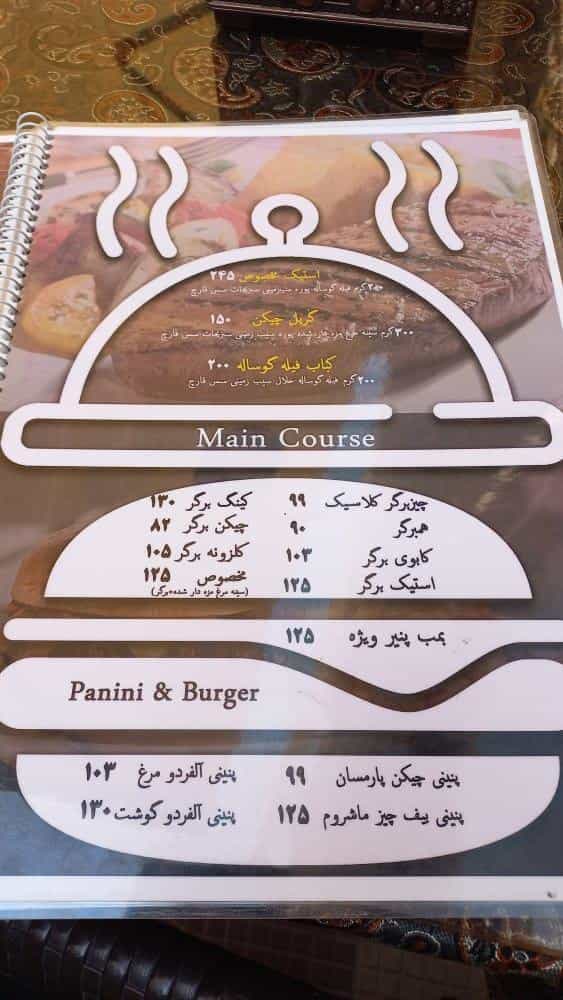 استیک مخصوص ۲۴۵
۲۵۰گرم فیله گوساله پوره سیبزمینی سبزیجات سس قارچ
گریل چیکن ۱۵۰
۳۰۰گرم سینه مرغ مزه دار شده پوره سیب زمینی سبزیجات سس قارچ
کباب فیله گوساله ۲۰۰
۲۰۰گرم فیله گوساله خلال سیب زمینی سس قارچ
Main Course
چیزبرگر کلاسیک ۹۹ کینگ برگر ۱۳۰
همبرگر ۹۰ چیکن برگر ۸۲
کابوی برگر ۱۰۳ کلزونه برگر ۱۰۵
استیک برگر ۱۲۵ مخصوص ۱۲۵
(سینه مرغ مزه دار شده+برگر)
بمب پنیر ویژه ۱۲۵
Panini & Burger
پنینی چیکن پارمسان ۹۹ پنینی آلفردو مرغ ۱۰۳
پنینی بیف چیز ماشروم ۱۲۵ پنینی آلفردو گوشت ۱۳۰